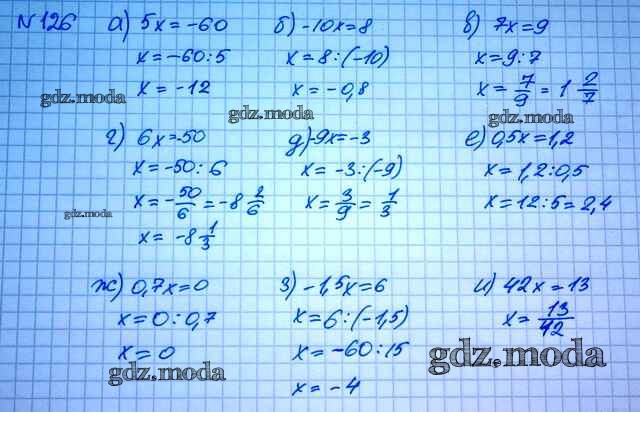 №126 а) 5x=-60 б) -10x=8 в) 7x=9
x=-60:5 x=8:(-10) x=9:7
x=-12 x=-0,8 x=7/9=1 2/7
gdz.moda gdz.moda gdz.moda
г) 6x=-50 д) -9x=-3 е) 0,5x=1,2
x=-50:6 x=-3:(-9) x=1,2:0,5
x=-50/6=-8 2/6 x=3/9=1/3 x=12:5=2,4
gdz.moda
x=-8 1/3
ж) 0,7x=0 з) -1,5x=6 и) 42x=13
x=0:0,7 x=6:(-1,5) x=13/42
x=0 x=-60:15
gdz.moda gdz.moda
x=-4